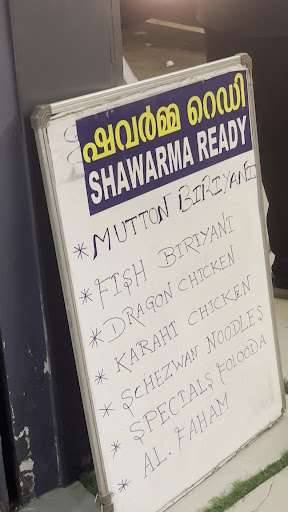 ഷവർമ്മ റെഡി
SHAWARMA READY
* MUTTON BIRIYANI
* FISH BIRIYANI
* DRAGON CHICKEN
* KARAHI CHICKEN
* SCHEZWAN NOODLES
* SPECIALS FOLOODA
* AL. FAHAM